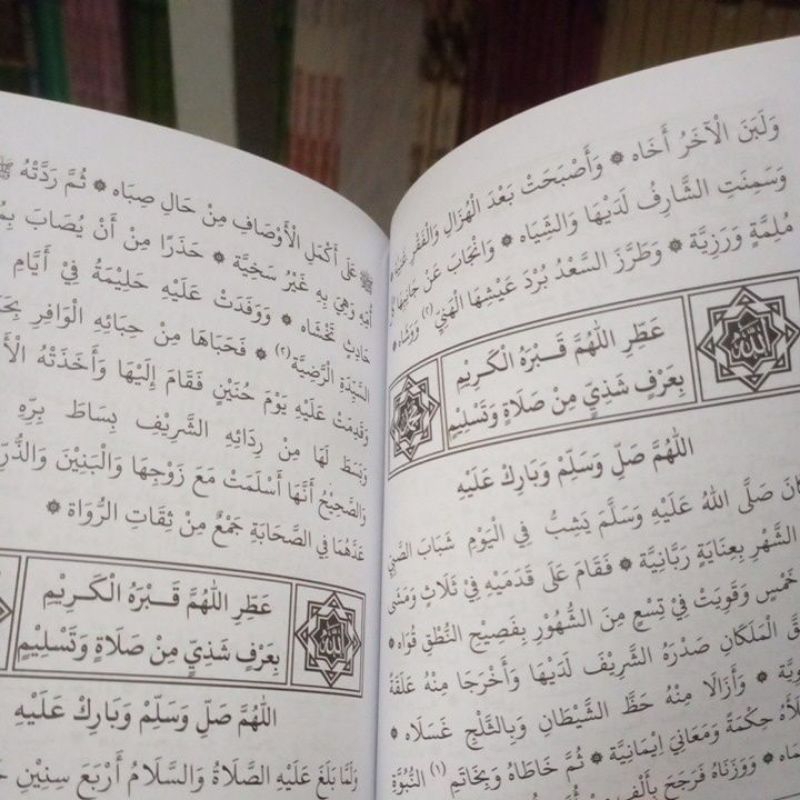 وَلَبَنَ الْآخَرُ أَخَاه * وَأَصْبَحَتْ بَعْدَ الْهُزَالِ وَالْفَقْرِ غَنِيَّة *
وَسَمِنَتِ الشَّارِفُ لَدَيْهَا وَالشِّيَاه * وَانْجَابَ عَنْ جَانِبِهَا
مُلِمَّةٍ وَرَزِيَّة * وَطَرَّزَ السَّعْدُ بُرْدَ عَيْشِهَا الْهَنِيِّ (٢) وَوَشَّاه *
الله
عَطِّرِ اللّٰهُمَّ قَبْرَهُ الْكَرِيمِ
بِعَرْفٍ شَذِيٍّ مِنْ صَلَاةٍ وَتَسْلِيمٍ
محمد
اَللّٰهُمَّ صَلِّ وَسَلِّمْ وَبَارِكْ عَلَيْهِ
صَلَّى اللهُ عَلَيْهِ وَسَلَّمَ يَشِبُّ فِي الْيَوْمِ شَبَابَ الصَّبِيِّ
الشَّهْرِ بِعِنَايَةٍ رَبَّانِيَّة * فَقَامَ عَلَى قَدَمَيْهِ فِيْ ثَلَاثٍ وَمَشَى
خَمْسٍ وَقَوِيَتْ فِيْ تِسْعٍ مِنَ الشُّهُوْرِ بِفَصِيْحِ النُّطْقِ قُوَاه *
الْمَلَكَانِ صَدْرَهُ الشَّرِيْفَ لَدَيْهَا وَأَخْرَجَا مِنْهُ عَلَقَةً
* وَأَزَالَا مِنْهُ حَظَّ الشَّيْطَانِ وَبِالثَّلْجِ غَسَلَاه *
حِكْمَةً وَمَعَانِيَ اِيْمَانِيَّة * ثُمَّ خَاطَاهُ وَبِخَاتَمِ (١) النُّبُوَّةِ
* وَوَزَنَاهُ فَرَجَحَ بِأَلْفٍ
ﷺ عَلَى أَكْمَلِ الْأَوْصَافِ مِنْ حَالِ صِبَاه * ثُمَّ رَدَّتْهُ ﷺ
أُمِّهِ وَهِيَ بِهِ غَيْرُ سَخِيَّة * حَذَرًا مِنْ أَنْ يُصَابَ
حَادِثٍ تَخْشَاه * وَوَفَدَتْ عَلَيْهِ حَلِيْمَةُ فِيْ أَيَّامِ
السَّيِّدَةِ الرَّضِيَّة (٢) * فَحَبَاهَا مِنْ حِبَائِهِ الْوَافِرِ
وَقَدِمَتْ عَلَيْهِ يَوْمَ حُنَيْنٍ فَقَامَ إِلَيْهَا وَأَخَذَتْهُ
وَبَسَطَ لَهَا مِنْ رِدَائِهِ الشَّرِيْفِ بِسَاطَ بِرِّهِ
وَالصَّحِيْحُ أَنَّهَا أَسْلَمَتْ مَعَ زَوْجِهَا وَالْبَنِيْنَ
عَدَّهُمَا فِي الصَّحَابَةِ جَمْعٌ مِنْ ثِقَاتِ الرُّوَاة *
الله
عَطِّرِ اللّٰهُمَّ قَبْرَهُ الْكَرِيْمِ
بِعَرْفٍ شَذِيٍّ مِنْ صَلَاةٍ وَتَسْلِيْمٍ
اَللّٰهُمَّ صَلِّ وَسَلِّمْ وَبَارِكْ عَلَيْهِ
وَلَمَّا بَلَغَ عَلَيْهِ الصَّلَاةُ وَالسَّلَامُ أَرْبَعَ سِنِيْنَ